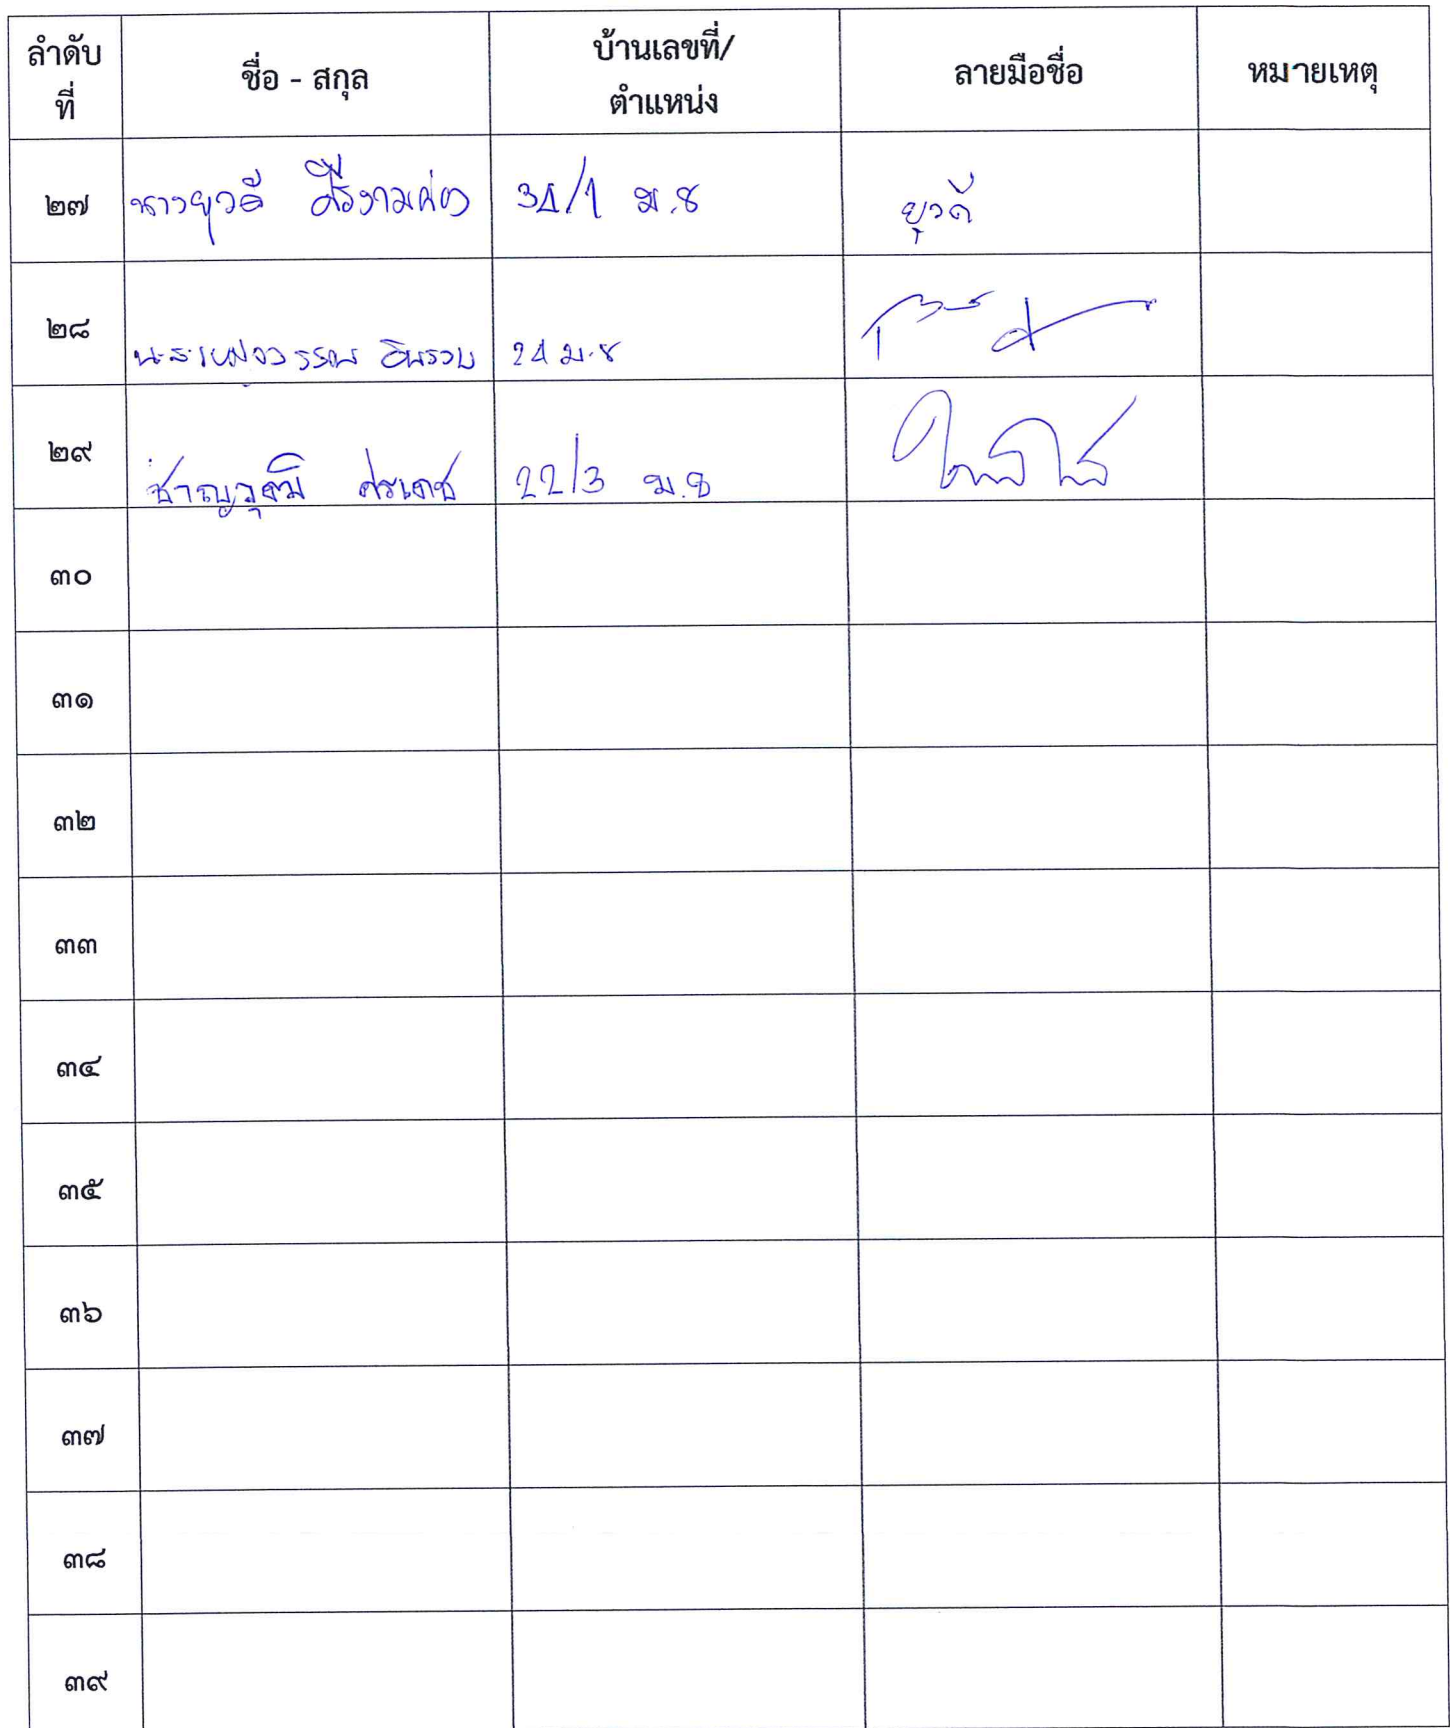 ลำดับ
ที่
ชื่อ - สกุล
บ้านเลขที่/
ตำแหน่ง
ลายมือชื่อ
หมายเหตุ
๒๗ นางยุวดี 34/1 ม.8 ยุวดี
๒๘ 24 ม.8
๒๙ ชาญวุฒิ ศรเดช 22/3 ม.8
๓๐
๓๑
๓๒
๓๓
๓๔
๓๕
๓๖
๓๗
๓๘
๓๙